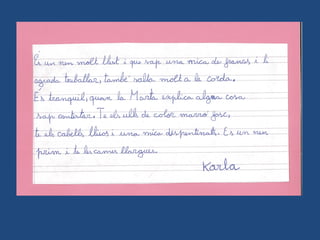 És un nen molt llest i que sap una mica de francs, i li
agrada treballar, també salta molt a la corda.
Es tranquil, quan la Marta explica algna cosa
sap contestar. Te els ulls de color marró fosc,
te els cabells llisos i una mica despentinats. Es un nen
prim i te les cames llargues.
Karla